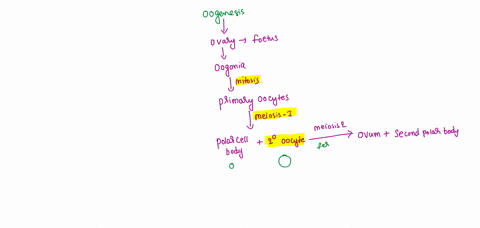 oogenesis
ovary → foetus
oogonia
mitosis
primary oocytes
meiosis-I
polar cell body + 2° oocyte
meiosis 2
fer
ovum + second polar body